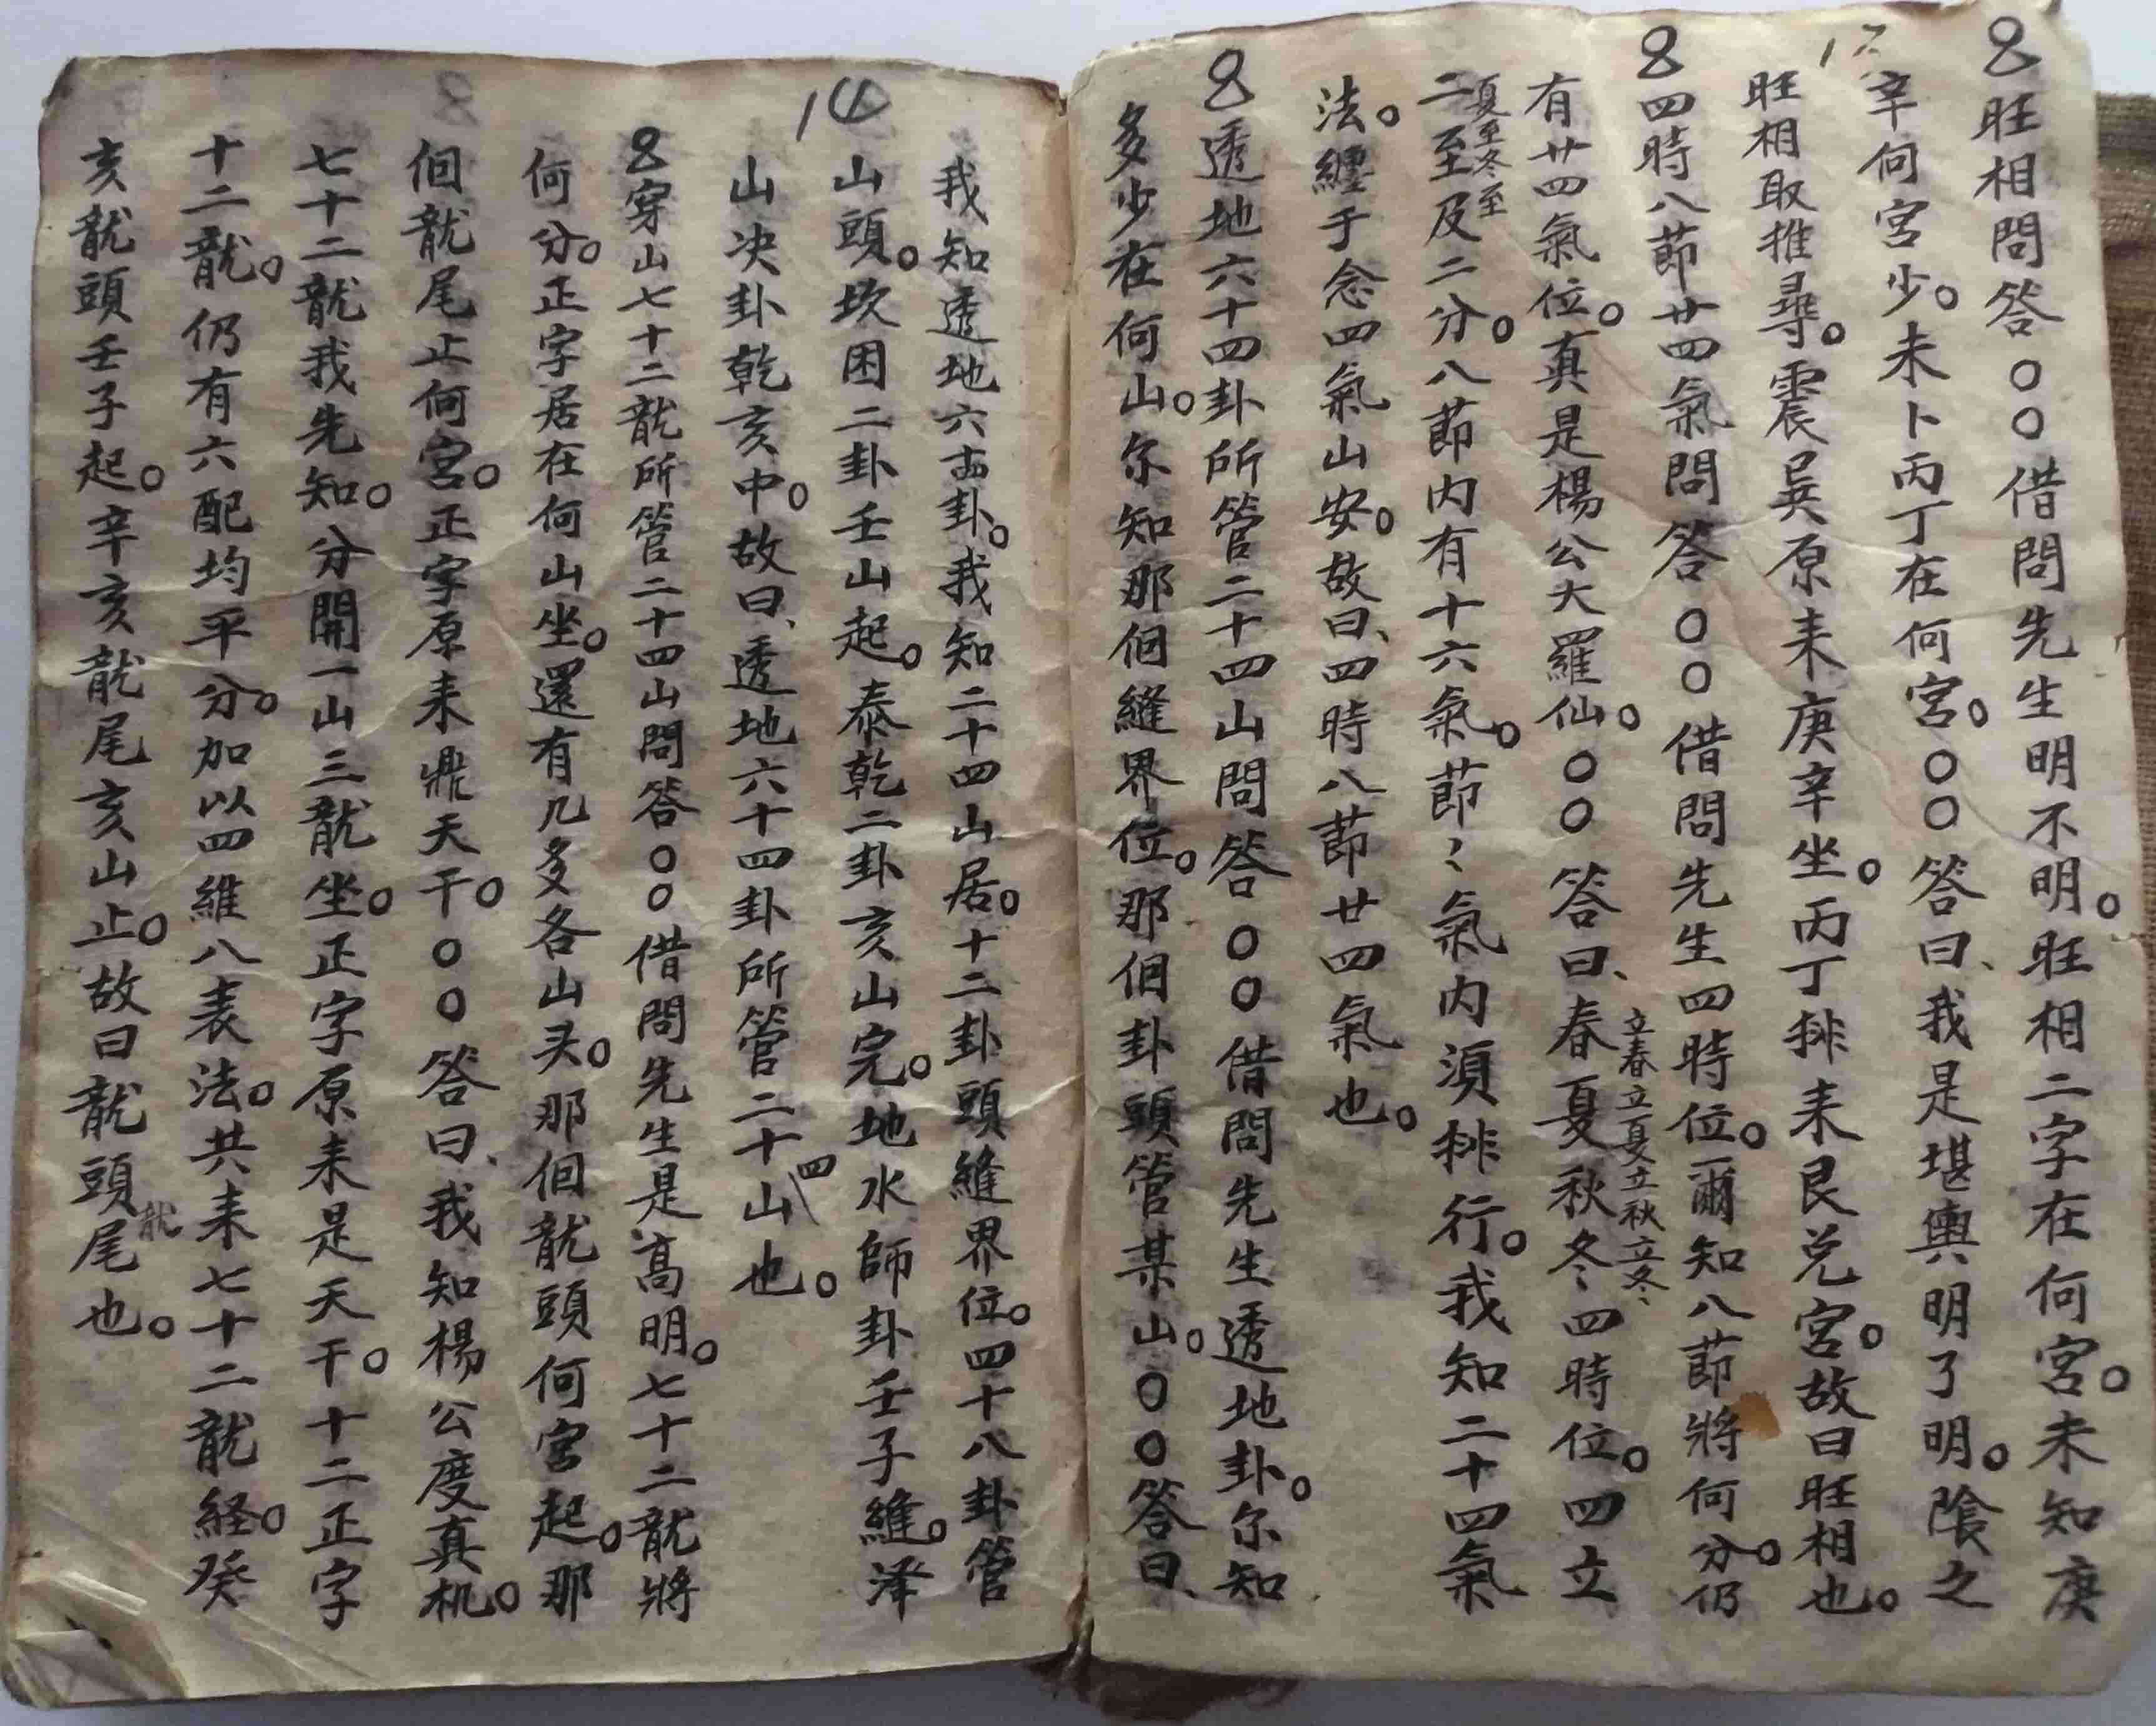 旺相問答○○借問先生明不明。旺相二字在何宮。未知庚
辛何宮少。未卜丙丁在何宮。○○答曰、我是堪輿明了明。陰之
旺相取推尋。震巽原來庚辛坐。丙丁排來艮兌宮。故曰旺相也。
四時八節廿四氣問答○○借問先生四時位。爾知八節將何分。仍
有廿四氣位。真是楊公大羅仙。○○答曰、春夏秋冬四時位。四立
立春立夏立秋立冬、
二至及二分。八節內有十六氣。節々氣內須排行。我知二十四氣
夏至冬至
法。纏于念四氣山安。故曰、四時八節廿四氣也。
透地六十四卦所管二十四山問答○○借問先生透地卦。尔知
多少在何山。尔知那個縫界位。那個卦頭管某山。○○答曰、
14
我知透地六十四卦。我知二十四山居。十二卦頭縫界位。四十八卦管
山頭。坎困二卦壬山起。泰乾二卦亥山完。地水師卦壬子縫。澤
山决卦乾亥中。故曰、透地六十四卦所管二十四山也。
穿山七十二龍所管二十四山問答○○借問先生是高明。七十二龍將
何分。正字居在何山坐。還有几多各山头。那個龍頭何宮起。那
個龍尾止何宮。正字原來鼎天干。○○答曰、我知楊公度真机。
七十二龍我先知。分開一山三龍坐。正字原來是天干。十二正字
十二龍。仍有六配均平分。加以四維八表法。共來七十二龍経。癸
亥龍頭壬子起。辛亥龍尾亥山止。故曰龍頭龍尾也。